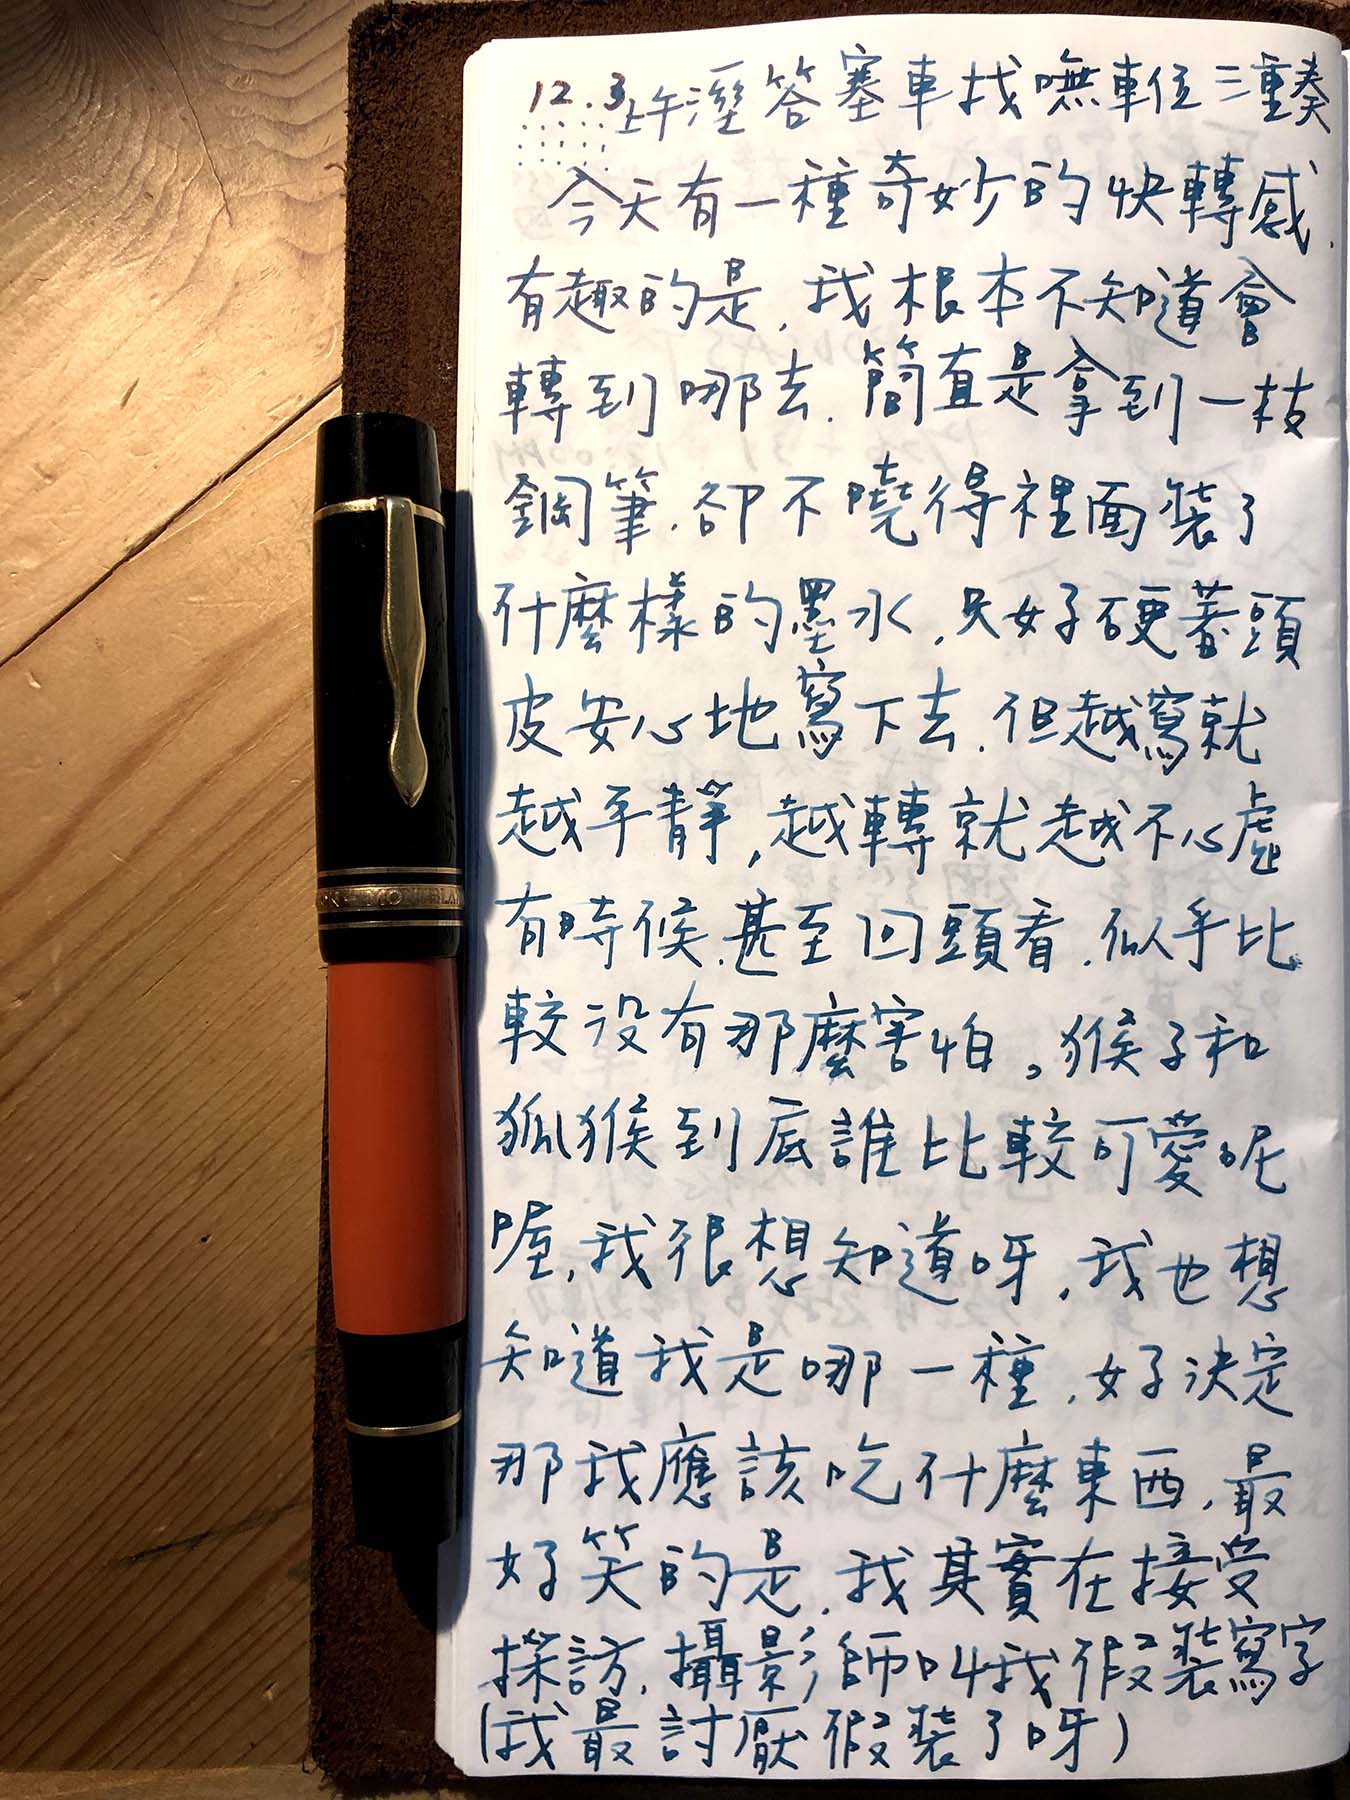 12.3 上午溼答塞車找嘸車位三重奏
今天有一種奇妙的快轉感.
有趣的是,我根本不知道會
轉到哪去.簡直是拿到一枝
鋼筆.卻不曉得裡面裝了
什麼樣的墨水,只好硬著頭
皮安心地寫下去.但越寫就
越平靜,越轉就越不心虛
有時候.甚至回頭看.似乎比
較没有那麼害怕。猴子和
狐猴到底誰比較可愛呢
喔,我很想知道呀,我也想
知道我是哪一種,好決定
那我應該吃什麼東西,最
好笑的是,我其實在接受
採訪,攝影師叫我假裝寫字
(我最討厭假裝了呀)